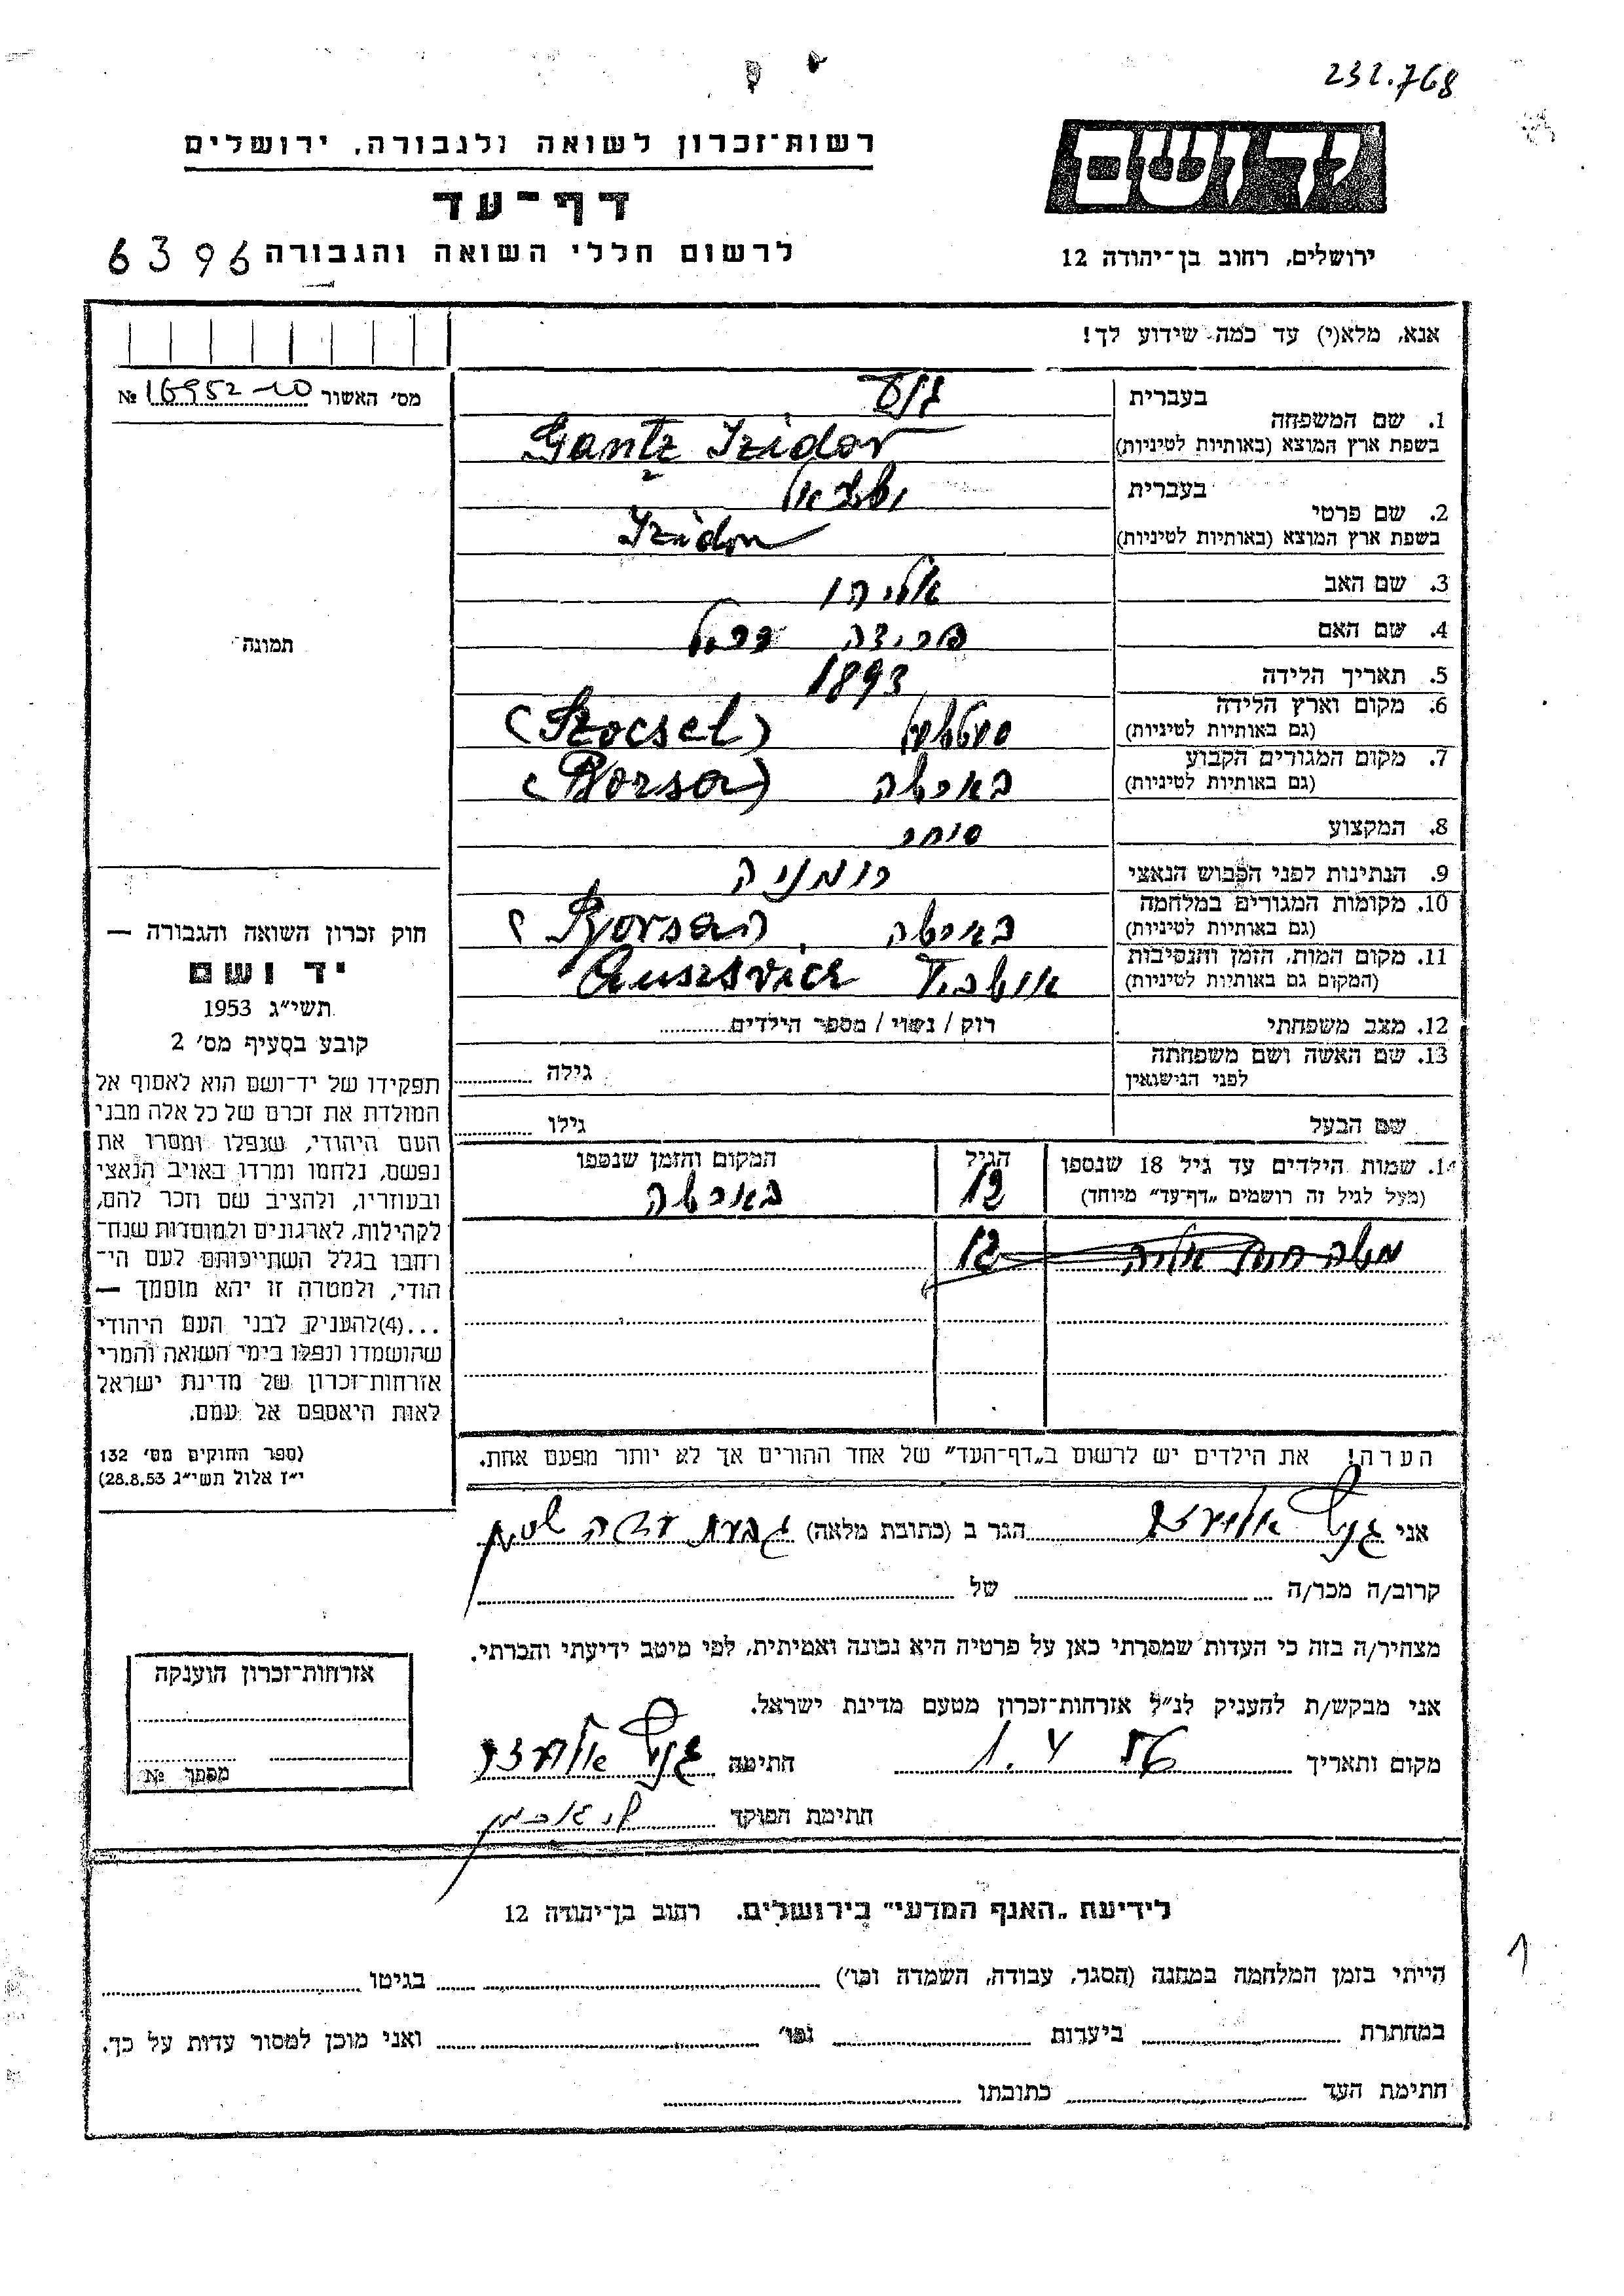 232.768
יד ושם
רשות־זכרון לשואה ולגבורה, ירושלים
דף־עד
ירושלים, רחוב בן־יהודה 12
לרשום חללי השואה והגבורה 6396
אנא, מלא(י) עד כמה שידוע לך!
מס' האשור № 16952-10
1. שם המשפחה
בעברית
בשפת ארץ המוצא (באותיות לטיניות) Gantz Izidor
2. שם פרטי
בעברית
בשפת ארץ המוצא (באותיות לטיניות) Izidor
3. שם האב אליהו
4. שם האם פריידה
5. תאריך הלידה 1893
6. מקום וארץ הלידה (Szocsel)
(גם באותיות לטיניות)
7. מקום המגורים הקבוע בארשה (Borsa)
(גם באותיות לטיניות)
8. המקצוע סוחר
9. הנתינות לפני הכבוש הנאצי רומניה
10. מקומות המגורים במלחמה בארשה
(גם באותיות לטיניות)
11. מקום המות, הזמן והנסיבות
(המקום גם באותיות לטיניות)
12. מצב משפחתי רווק / נשוי / מספר הילדים
13. שם האשה ושם משפחתה גילה
לפני הנישואין
שם הבעל גילו
14. שמות הילדים עד גיל 18 שנספו
(מעל לגיל זה רושמים „דף־עד” מיוחד)
הגיל
12
המקום והזמן שנספו
בארשה
משה
12
הערה! את הילדים יש לרשום ב„דף־העד” של אחד ההורים אך לא יותר מפעם אחת.
תמונה
חוק זכרון השואה והגבורה —
יד ושם
תשי״ג 1953
קובע בסעיף מס' 2
תפקידו של יד־ושם הוא לאסוף אל
המולדת את זכרם של כל אלה מבני
העם היהודי, שנפלו ומסרו את
נפשם, נלחמו ומרדו באויב הנאצי
ובעוזריו, ולהציב שם וזכר להם,
לקהילות, לארגונים ולמוסדות שנח־
רבו בגלל השתייכותם לעם הי־
הודי, ולמטרה זו יהא מוסמך —
...(4)להעניק לבני העם היהודי
שהושמדו ונפלו בימי השואה והמרי
אזרחות־זכרון של מדינת ישראל
לאות היאספם אל עמם.
(ספר החוקים מס' 132
י״ז אלול תשי״ג 28.8.53)
אני גנץ הגר ב (כתובת מלאה) גבעת עדה
קרוב/ה מכר/ה של
מצהיר/ה בזה כי העדות שמסרתי כאן על פרטיה היא נכונה ואמיתית, לפי מיטב ידיעתי והכרתי.
אני מבקש/ת להעניק לנ״ל אזרחות־זכרון מטעם מדינת ישראל.
מקום ותאריך חתימה גנץ
חתימת הפוקד
אזרחות־זכרון הוענקה
מסמך №
לידיעת „האגף המדעי” בירושלים. רחוב בן־יהודה 12
הייתי בזמן המלחמה במחנה (הסגר, עבודה, השמדה וכו') בגיטו
במחתרת ביערות וכו' ואני מוכן למסור עדות על כך.
חתימת העד כתובתו
1